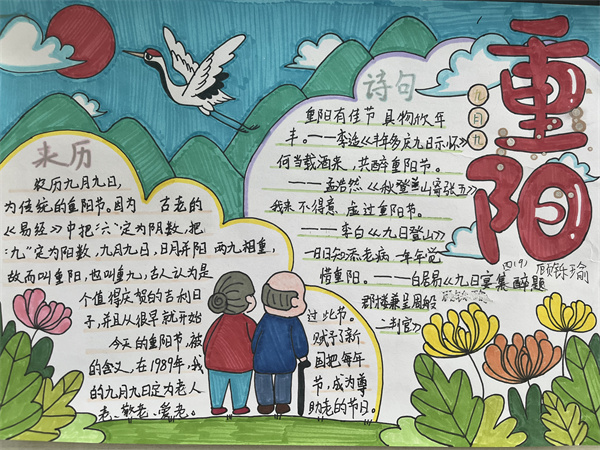 重阳
九月九
来历
农历九月九日,
为传统的重阳节。因为 古老的
《易经》中把"六"定为阴数,把
"九"定为阳数,九月九日,日月并阳 两九相重,
故而叫重阳,也叫重九,古人认为是
个值得庆贺的吉利日
子,并且从很早就开始 过此节。
今天的重阳节,被 赋予了新
的含义,在1989年,我 国把每年
的九月九日定为老人 节,成为尊
老、敬老、爱老、 助老的节日。
诗句
重阳有佳节 具物欣年
丰。——李适《丰年多庆九日示怀》
何当载酒来,共醉重阳节。
——孟浩然《秋登兰山寄张五》
我来不得意,虚过重阳节。
——李白《九日登山》
一日日知添老病 一年年觉
惜重阳。——白居易《九日宴集醉题
郡楼兼呈周殷
二判官》
四(9)